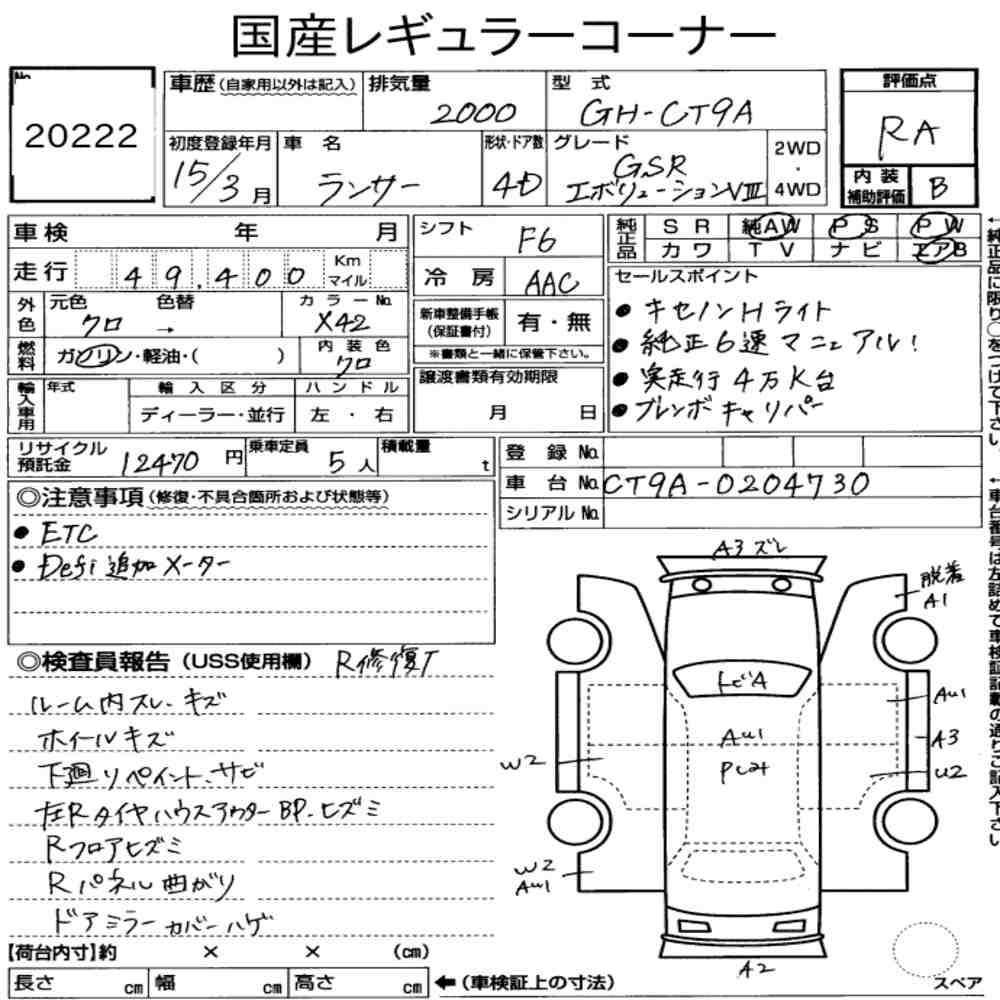 国産レギュラーコーナー
No.
20222
車歴(自家用以外は記入)
排気量
2000
型 式
GH-CT9A
評価点
RA
初度登録年月
15/3月
車 名
ランサー
形状・ドア数
4D
グレード
GSR
エボリューションVIII
2WD
・
4WD
内 装
補助評価
B
車検 年 月
シフト
F6
純正品
SR 純AW PS PW
カワ TV ナビ エアB
走行 49,400 Km マイル
冷 房
AAC
セールスポイント
● キセノンHライト
● 純正6速マニュアル!
● 実走行4万K台
● ブレンボキャリパー
外色
元色
クロ
色替
→
カラーNo.
X42
新車整備手帳
(保証書付)
有・無
※書類と一緒に保管下さい。
燃料
ガソリン・軽油・( )
内装色
クロ
輸入車用
年式
輸入区分
ディーラー・並行
ハンドル
左 ・ 右
譲渡書類有効期限
月 日
リサイクル
預託金
12470円
乗車定員
5人
積載量
t
登 録 No.
車 台 No. CT9A-0204730
シリアル No.
←純正品に限り○をつけて下さい。
←車台番号は左詰めで車検証記載の通りご記入下さい
◎注意事項(修復・不具合箇所および状態等)
● ETC
● Defi追加メーター
◎検査員報告(USS使用欄) R修復了
ルーム内スレ・キズ
ホイールキズ
下廻リペイント、サビ
左RタイヤハウスアウターBP・ヒズミ
Rフロアヒズミ
Rパネル曲がり
ドアミラーカバーハゲ
A3 ズレ
脱着
A1
トビA
AU1
AU1
Pじみ
A3
W2
U2
W2
AU1
A2
スペア
【荷台内寸】約 × × (cm)
長さ cm 幅 cm 高さ cm ←(車検証上の寸法)